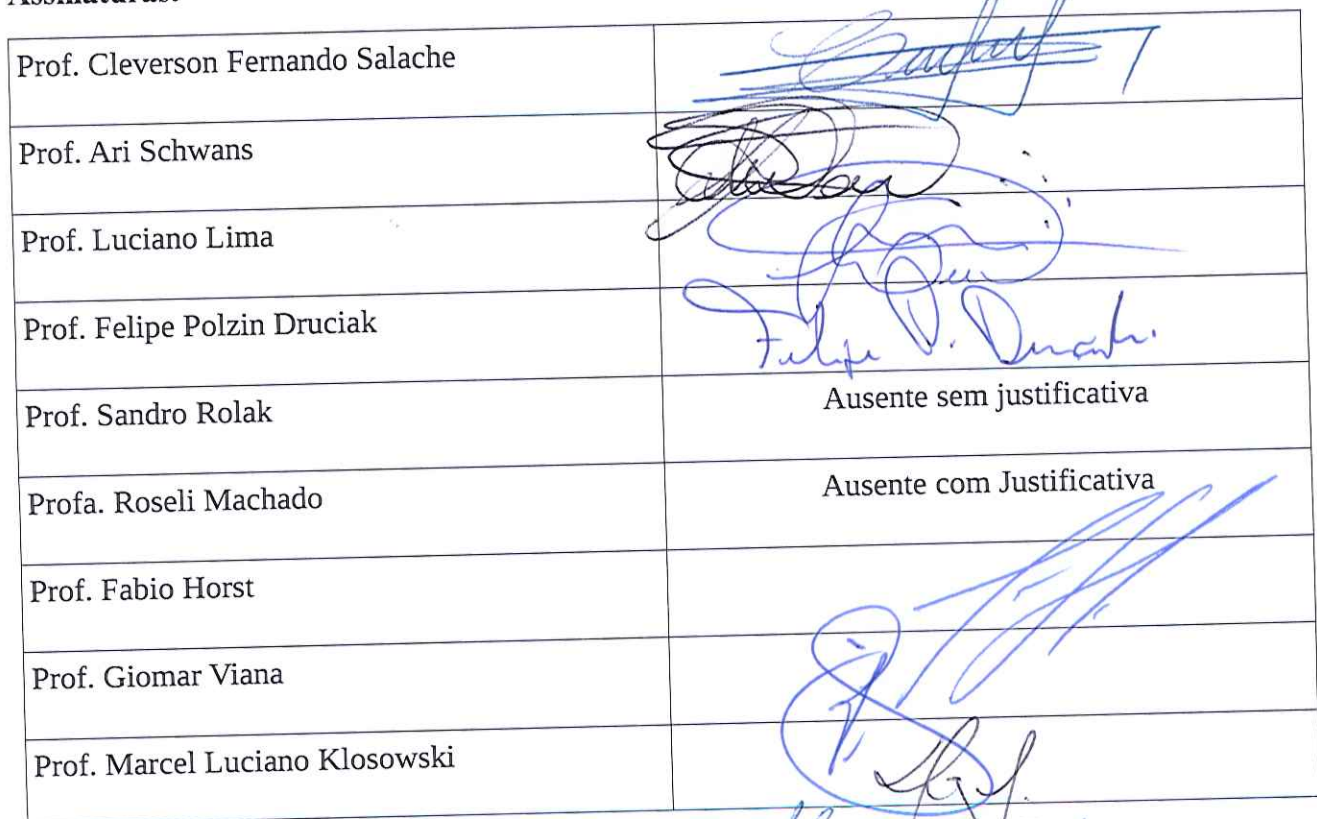 Prof. Cleverson Fernando Salache
Prof. Ari Schwans
Prof. Luciano Lima
Prof. Felipe Polzin Druciak
Felipe P.
Prof. Sandro Rolak Ausente sem justificativa
Profa. Roseli Machado Ausente com Justificativa
Prof. Fabio Horst
Prof. Giomar Viana
Prof. Marcel Luciano Klosowski